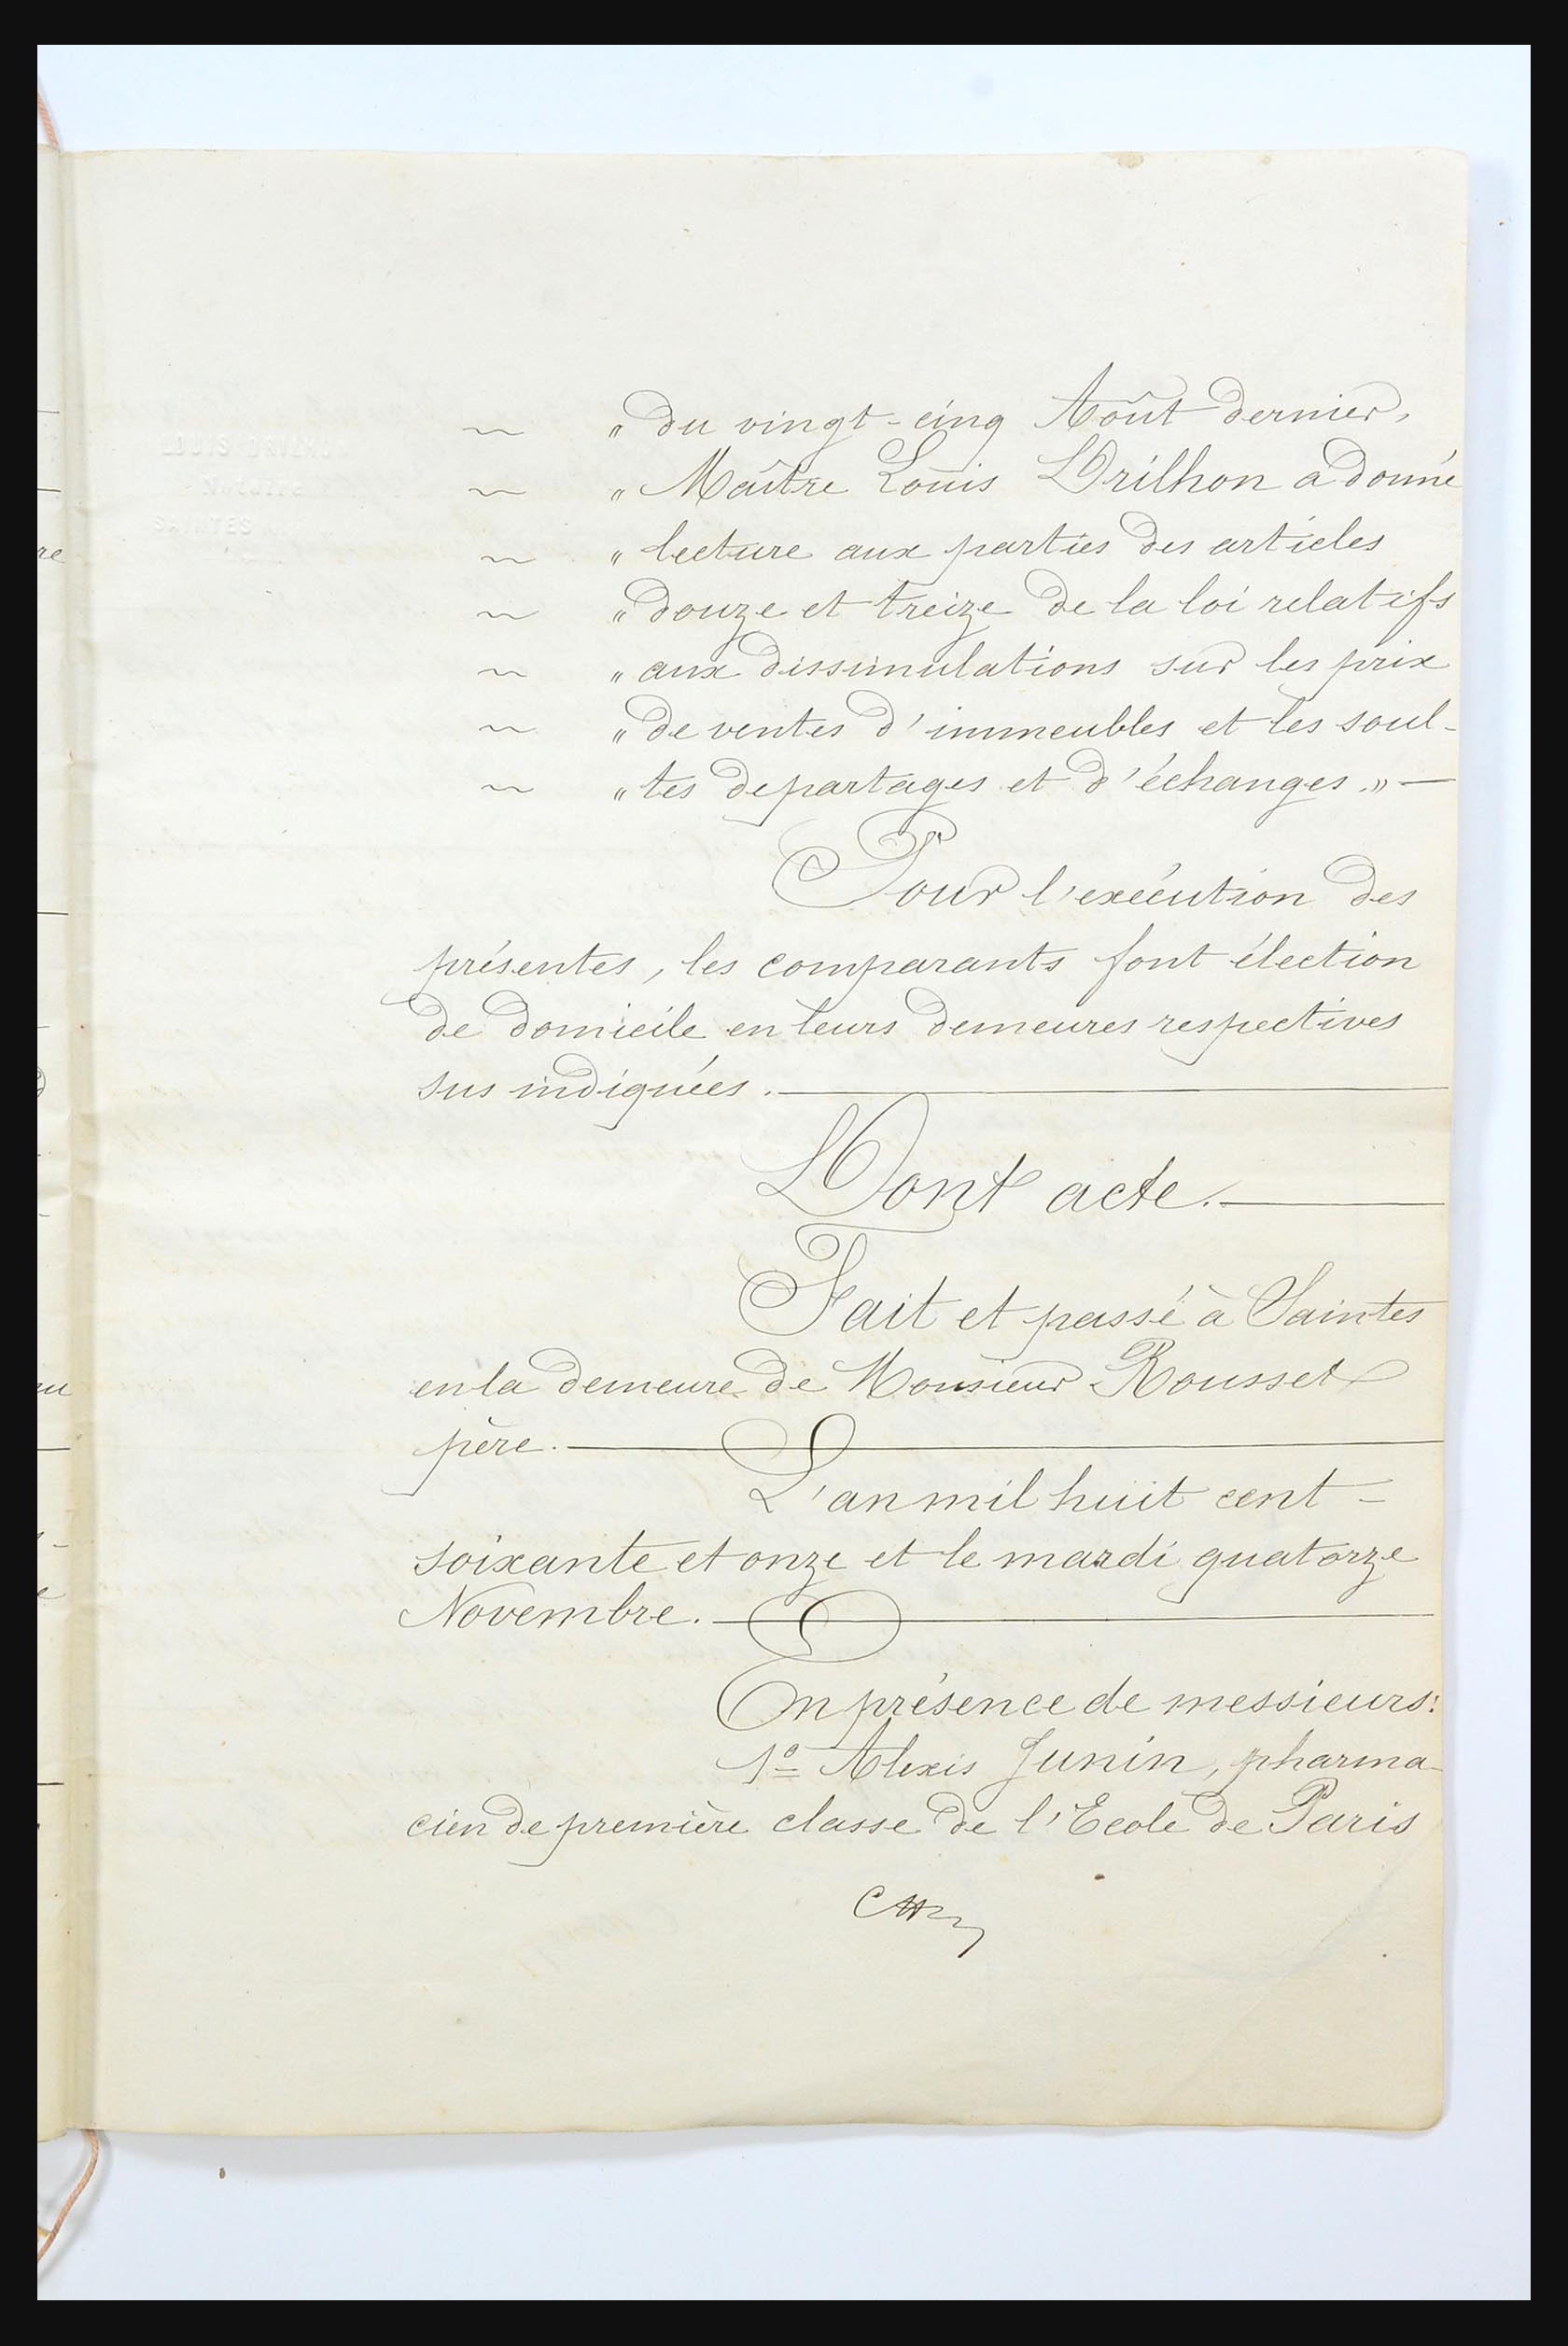 LOUIS DRILHON
NOTAIRE
SAINTES
~ „ du vingt-cinq Août dernier,
~ „ Maître Louis Drilhon a donné
~ „ lecture aux parties des articles
~ „ douze et treize de la loi relatifs
~ „ aux dissimulations sur les prix
~ „ de ventes d'immeubles et les soul-
~ „ tes de partages et d'échanges.» —
Pour l'exécution des
présentes, les comparants font élection
de domicile en leurs demeures respectives
sus indiquées. —
Dont acte. —
Fait et passé à Saintes
en la demeure de Monsieur Rousset
père. —
L'an mil huit cent -
soixante et onze et le mardi quatorze
Novembre. —
En présence de messieurs:
1º Alexis Junin, pharma-
cien de première classe de l'Ecole de Paris